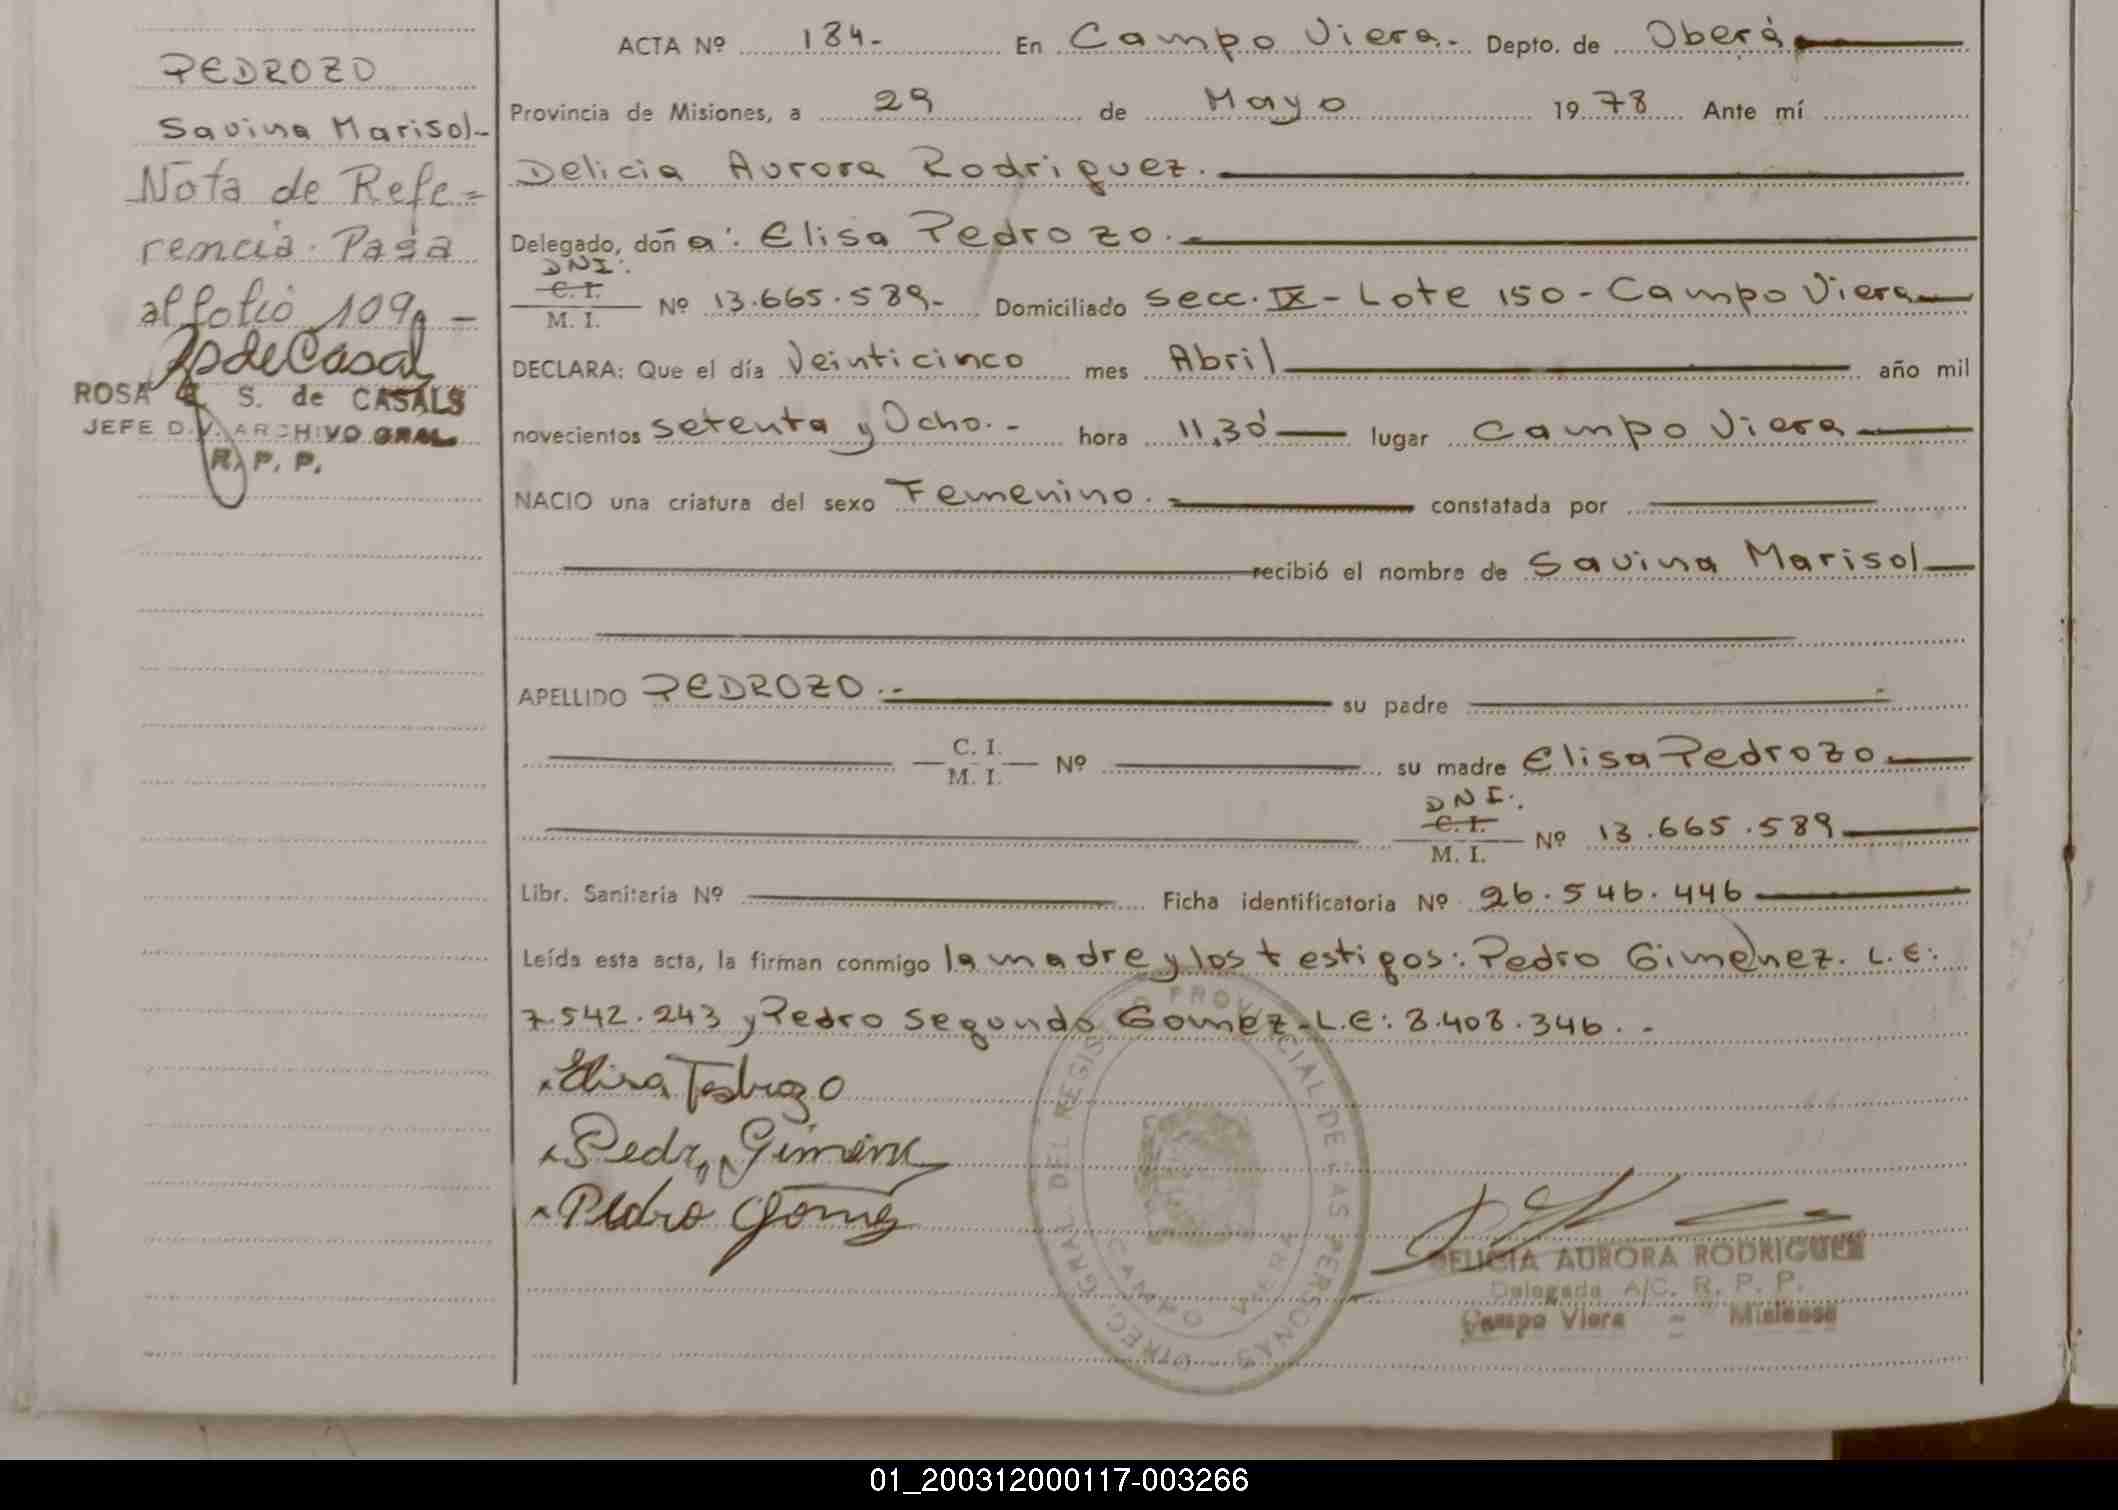 PEDROZO
Savina Marisol-
Nota de Refe=
rencia. Pasa
al folio 109. -
ROSA S. de CASALS
JEFE DIV. ARCHIVO GRAL.
R. P. P.
ACTA Nº 184.- En Campo Viera.- Depto. de Oberá
Provincia de Misiones, a 29 de Mayo 1978 Ante mí
Delicia Aurora Rodriguez.
Delegado, doña: Elisa Pedrozo.-
DNI:
C. I.
M. I. Nº 13.665.589.- Domiciliado Secc. IX - Lote 150 - Campo Viera
DECLARA: Que el día Veinticinco mes Abril año mil
novecientos setenta y Ocho.- hora 11,30 lugar Campo Viera
NACIO una criatura del sexo Femenino.- constatada por
recibió el nombre de Savina Marisol
APELLIDO PEDROZO.- su padre
C. I.
M. I. Nº su madre Elisa Pedrozo
DNI.
C. I.
M. I. Nº 13.665.589
Libr. Sanitaria Nº Ficha identificatoria Nº 26.546.446
Leída esta acta, la firman conmigo la madre y los testigos: Pedro Gimenez. L.E:
7.542.243 y Pedro Segundo Gomez - L.E: 8.408.346.-
Elisa Pedrozo
Pedro Gimenez
Pedro Gomez
DIREC. GRAL. DEL REGISTRO PROVINCIAL DE LAS PERSONAS
CAMPO VIERA
DELICIA AURORA RODRIGUEZ
Delegada A/C. R. P. P.
Campo Viera = Misiones
01_200312000117-003266